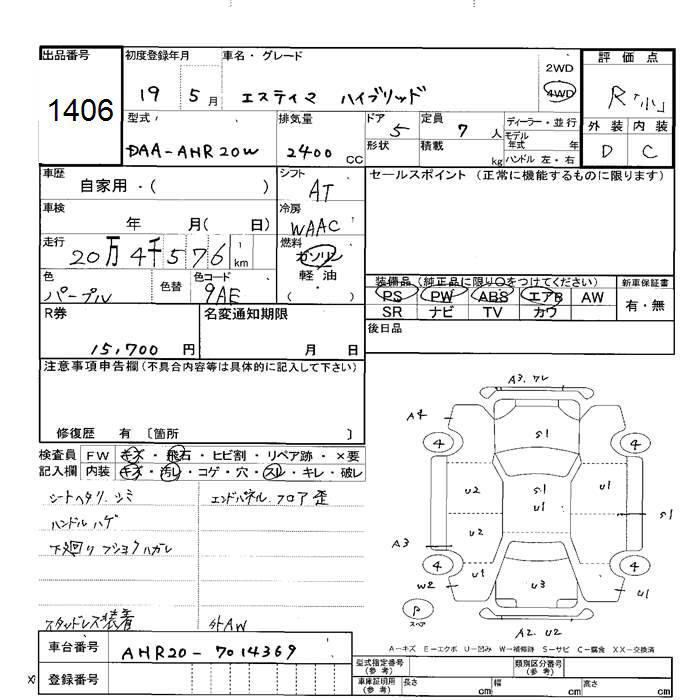 出品番号
1406
初度登録年月
19 5月
車名・グレード
エスティマ ハイブリッド
2WD
4WD
評価点
R「小」
外装 内装
D C
型式
DAA-AHR20W
排気量
2400 CC
ドア
5
形状
定員
7 人
積載
kg
ディーラー・並行
モデル年式 年
ハンドル 左・右
車歴
自家用・( )
シフト
AT
車検
年 月( 日)
冷房
WAAC
走行
20万4千576 1 km
燃料
ガソリン
軽油
( )
色
パープル
色替
色コード
9AE
セールスポイント (正常に機能するものに限ります)
装備品 (純正品に限り○をつけてください)
PS PW ABS エアB AW
SR ナビ TV カワ
新車保証書
有・無
R券
15,700 円
名変通知期限
月 日
後日品
注意事項申告欄(不具合内容等は具体的に記入して下さい)
修復歴 有 〔箇所 〕
検査員記入欄
FW キズ・飛石・ヒビ割・リペア跡・×要
内装 キズ・汚レ・コゲ・穴・スレ・キレ・破レ
シートヘタリ、シミ
エンドパネル、フロア歪
ハンドルハゲ
下廻りフショクハガレ
スタッドレス装着
外AW
車台番号
AHR20-7014369
登録番号
A3.ワレ
A4
4
4
S1
U2
S1
U1
U1
S1
A3
U2
4
4
W2
U1
U3
U1
U1
P
スペア
A2 U2
A-キズ E-エクボ U-凹み W-補修跡 S-サビ C-腐食 XX-交換済
型式指定番号(参考)
類別区分番号(参考)
車庫証明用(参考)
長さ cm
幅 cm
高さ cm